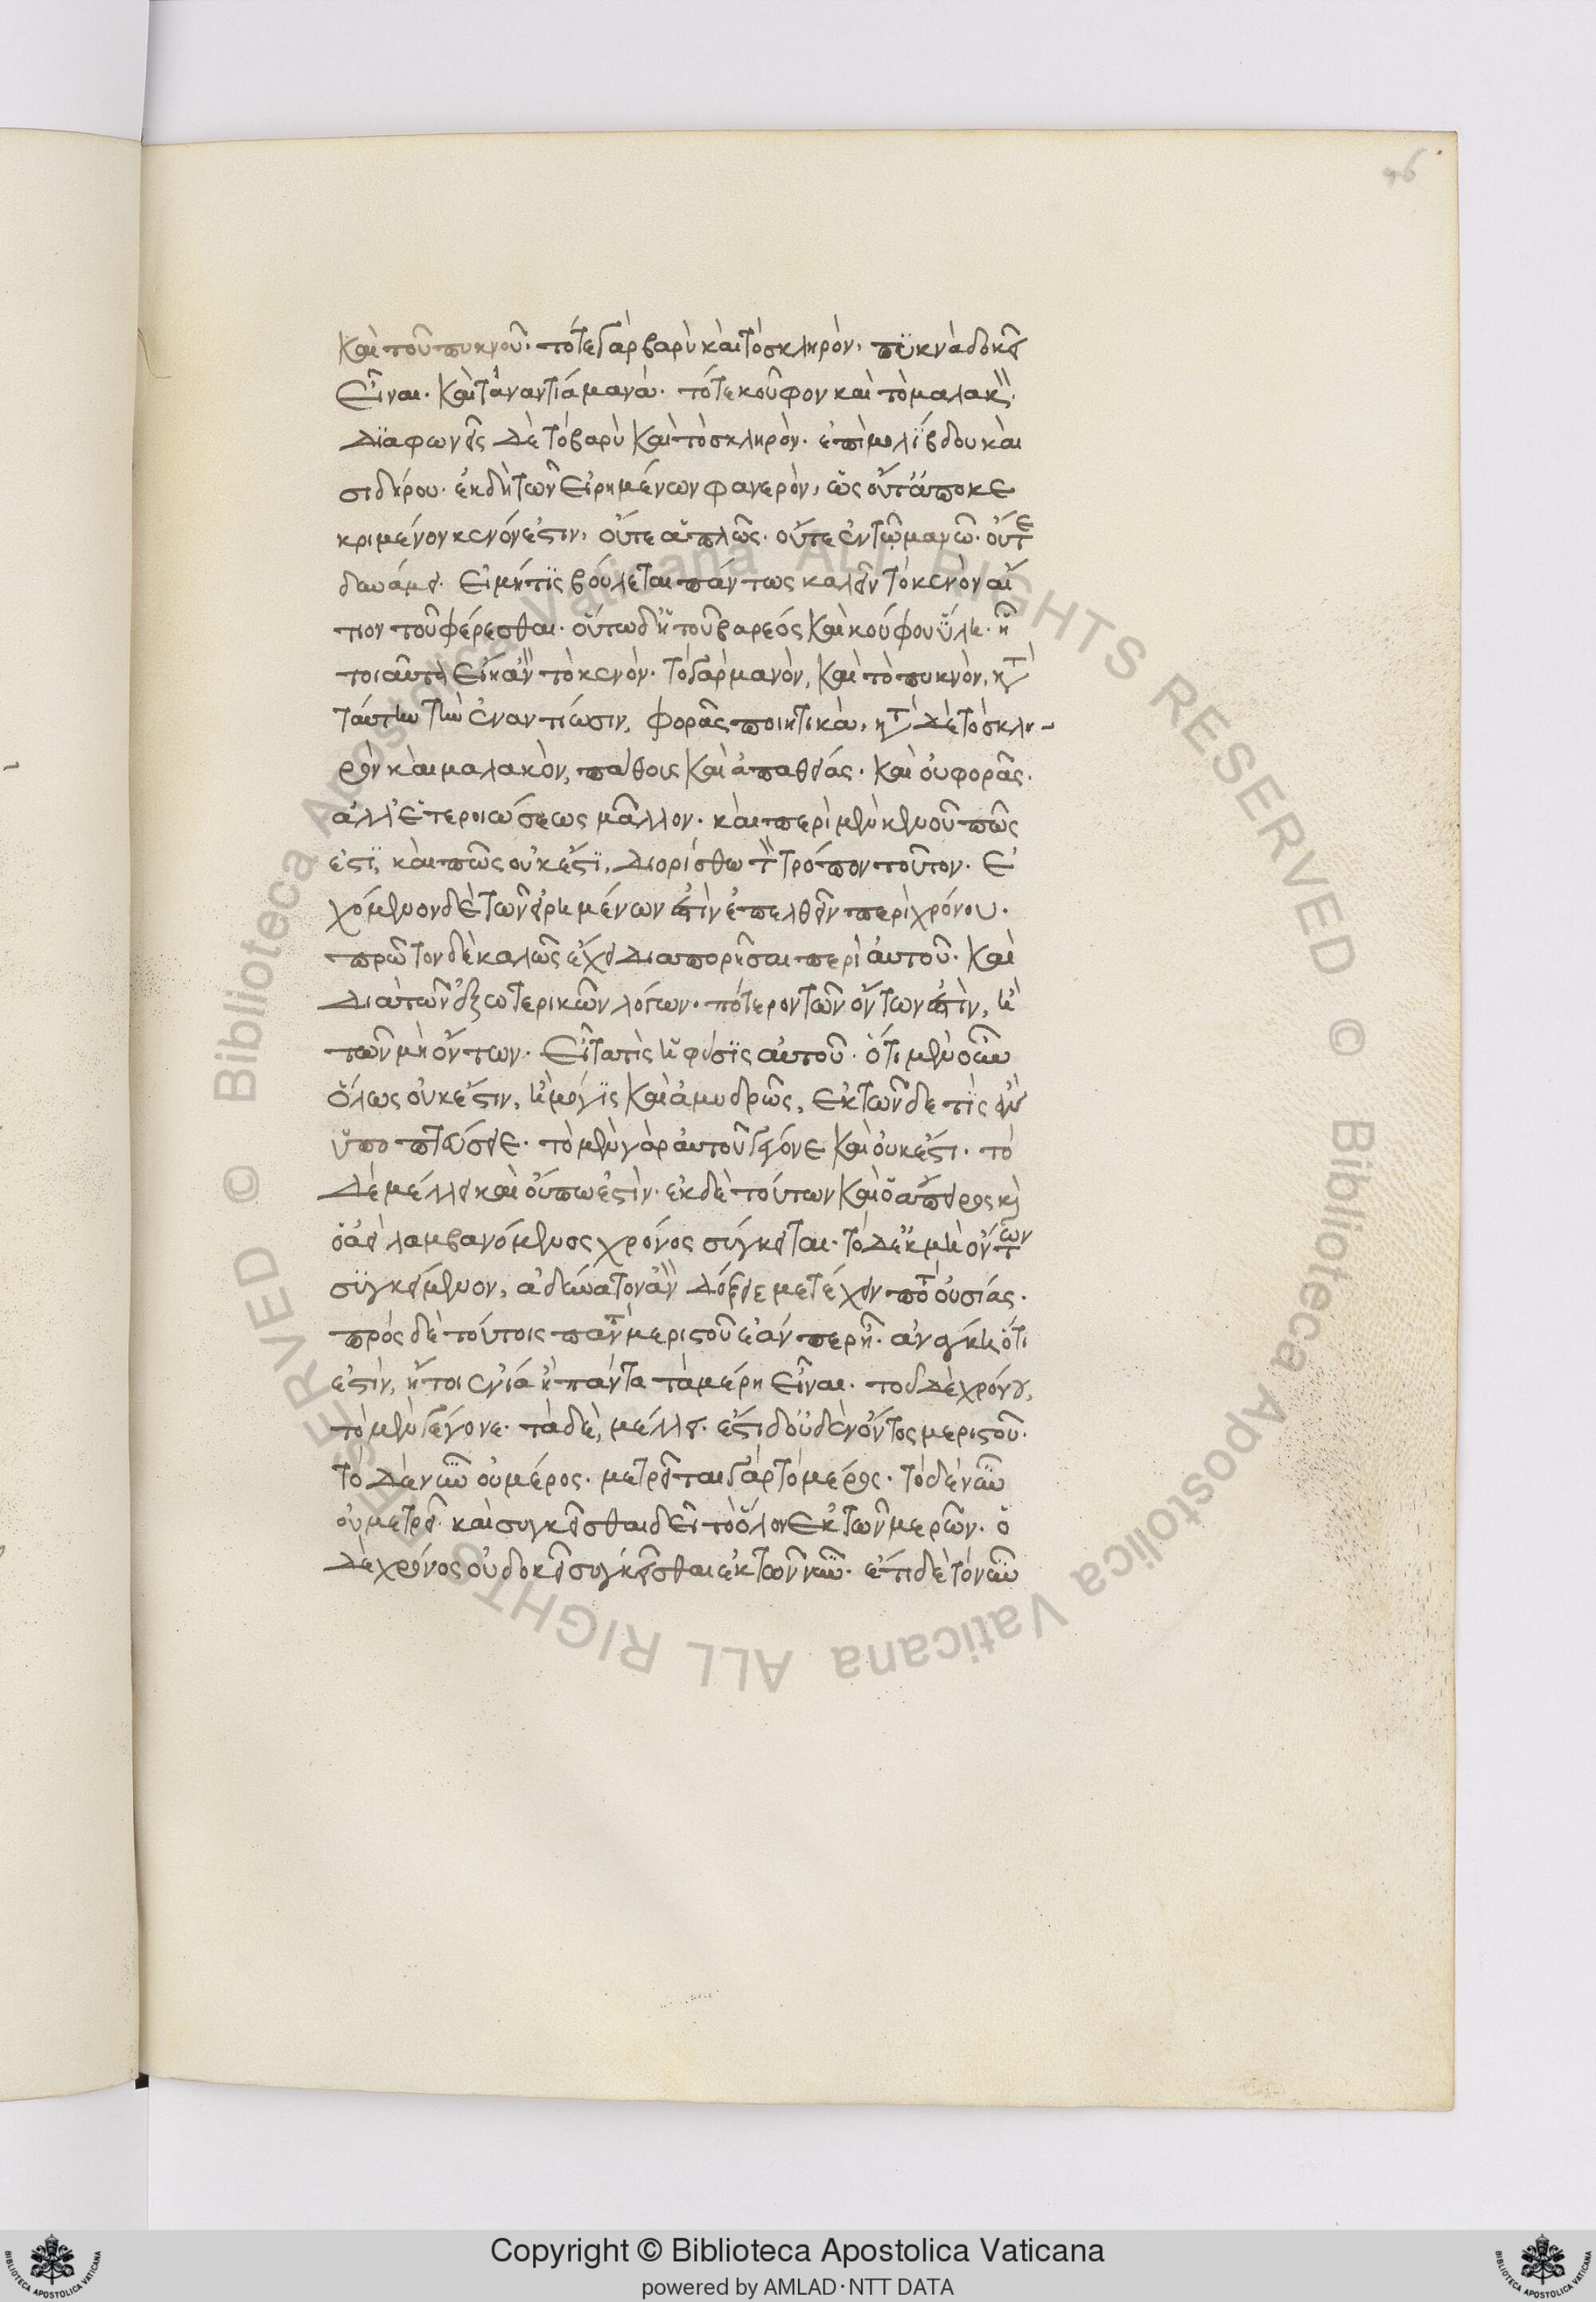 96
καὶ τοῦ πυκνοῦ. τό τε γὰρ βαρὺ καὶ τὸ σκληρὸν, πϋκνὰ δοκεῖ
εἶναι. καὶ τἀναντιά μανά. τό τε κοῦφον καὶ τὸ μαλακὸν.
διαφωνεῖς δὲ τὸ βαρὺ καὶ τὸ σκληρὸν. ἐπὶ μολίβδου καὶ
σιδήρου. ἐκ δὴ τῶν εἰρημένων φανερὸν, ὡς οὔτ' ἀποκε
κριμένον κενόν ἐστιν, οὔτε ἁπλῶς. οὔτε ἐν τῷ μανῷ. οὔτε
δυνάμει. εἰ μή τϊς βούλεται πάντως καλεῖν τὸ κενὸν αἴ
τιον τοῦ φέρεσθαι. οὕτω δ' ἡ τοῦ βαρέος καὶ κούφου ὕλη. ἡ
τοιαύτη εἴη ἂν τὸ κενόν. τὸ γὰρ μανὸν, καὶ τὸ πυκνὸν, κατὰ
ταύτην τὴν ἐναντίωσιν, φορᾶς ποιητικὰ, κατὰ δὲ τὸ σκλη-
ρὸν καὶ μαλακὸν, πάθους καὶ ἀπαθείας. καὶ οὐ φορᾶς.
ἀλλ' ἑτεροιώσεως μᾶλλον. καὶ περὶ μὲν κενοῦ πῶς
ἐστϊ, καὶ πῶς οὐκ ἔστϊ, διορίσθω τὸν τρόπον τοῦτον. ἐ
χόμενον δὲ τῶν εἰρημένων ἐστὶν ἐπελθεῖν περὶ χρόνου.
πρῶτον δὲ καλῶς ἔχει διαπορῆσαι περὶ αὐτοῦ. καὶ
διὰ τῶν ἐξωτερικῶν λόγων. πότερον τῶν ὄντων ἐστὶν, ἢ
τῶν μὴ ὄντων. εἶτα τίς ἡ φύσϊς αὐτοῦ. ὅτι μὲν οὖν
ὅλως οὐκ ἔστιν, ἢ μόγϊς καὶ ἀμυδρῶς, ἐκ τῶνδε τϊς ἂν
ὑποπτεύσειε. τὸ μὲν γὰρ αὐτοῦ γέγονε καὶ οὐκ ἔστι. τὸ
δὲ μέλλει καὶ οὔπω ἐστὶν. ἐκ δὲ τούτων καὶ ὁ ἄπειρος καὶ
ὁ ἀεὶ λαμβανόμενος χρόνος σύγκειται. τὸ δ' ἐκ μὴ ὄντων
σϋγκείμενον, ἀδύνατον ἂν δόξειε μετέχειν ποτὲ οὐσίας.
πρὸς δὲ τούτοις παντὸς μεριστοῦ ἐάν περ ᾖ. ἀνάγκη ὅτι
ἐστὶν, ἤτοι ἐνιά ἢ πάντα τὰ μέρη εἶναι. τοῦ δὲ χρόνου,
τὸ μὲν γέγονε. τὰ δὲ, μέλλει. ἔστι δ' οὐδὲν ὄντος μεριστοῦ.
τὸ δὲ νῦν οὐ μέρος. μετρεῖται γὰρ τὸ μέρος. τὸ δὲ νῦν
οὐ μετρεῖ. καὶ συγκεῖσθαι δεῖ τὸ ὅλον ἐκ τῶν μερῶν. ὁ
δὲ χρόνος οὐ δοκεῖ συγκεῖσθαι ἐκ τῶν νῦν. ἔτι δὲ τὸ νῦν